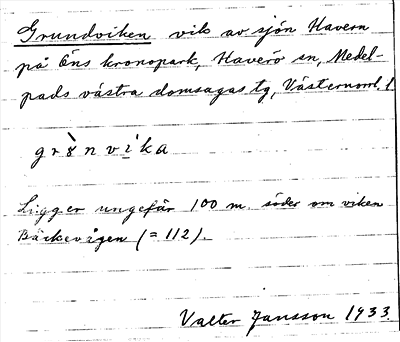 Grundviken vik av sjön Havern
på Öns kronopark, Haverö sn, Medel-
pads västra domsagas tg, Västernorrl. l.
Ligger ungefär 100 m. söder om viken
Bäckevågen (= 112).
Valter Jansson 1933.